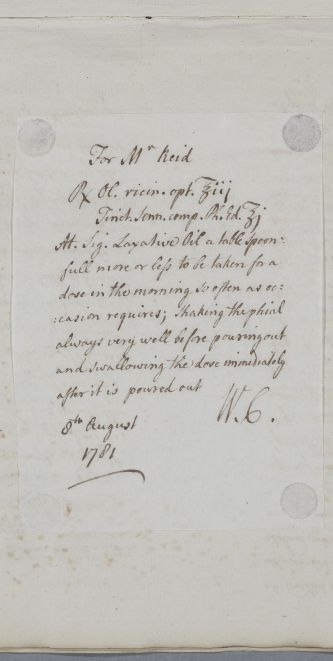 For Mr Reid
℞ Ol. ricin. opt. ℥iij
Tinct. Senn. comp. Ph. Ed. ℥j
Mt. Sig. Laxative Oil a table spoon:
full more or less to be taken for a
dose in the morning so often as oc:
:casion requires; shaking the phial
always very well before pouring out
and swallowing the dose immediately
after it is poured out
W. C.
8th August
1781